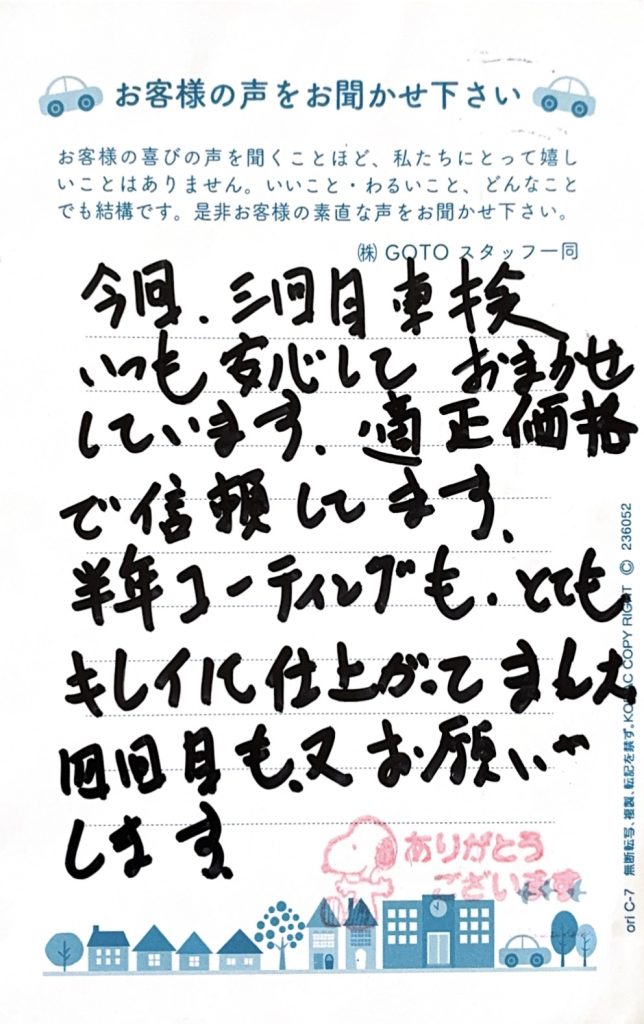 お客様の声をお聞かせ下さい
お客様の喜びの声を聞くことほど、私たちにとって嬉し
いことはありません。いいこと・わるいこと、どんなこと
でも結構です。是非お客様の素直な声をお聞かせ下さい。
㈱ GOTO スタッフ一同
今回、三回目車検
いつも安心して おまかせ
しています。適正価格
で信頼してます。
半年コーティングも、とても
キレイに仕上がってまんた
四回目も、又お願いか
します。
ありがとう
ございます
ori C-7 無断転写、複製、転記を禁ず。KOZAC COPY RIGHT © 236052